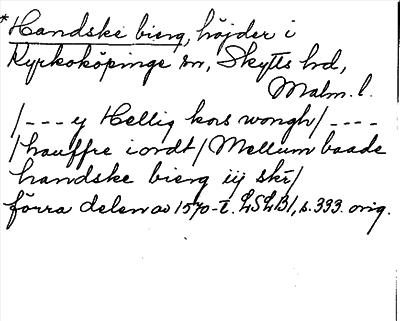 *Handske bierg, höjder i
Kyrkoköpinge sn, Skytts hd,
Malm. l.
/--- y Hellig kors wongh/ ----
/hauffre iordt/ Mellum baade
handske bierg iij skr/
förra delen av 1570-t. LSLB1, s. 333. orig.